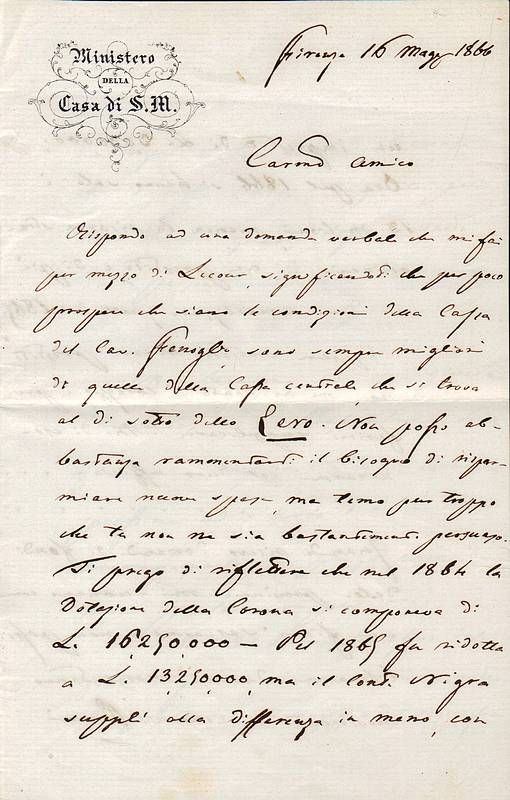 Ministero
DELLA
Casa di S. M.
Firenze 16 Magg 1866
Carmo Amico
Rispondo ad una domanda verbale che mi fai
per mezzo di significandoti che per poco
prospere che siano le condizioni della Cassa
del Cav. sono sempre migliori
di quelle della Cassa centrale che si trova
al di sotto dello Zero. Non posso ab-
bastanza rammentarti il bisogno di rispar-
miare nuove spese, ma temo pur troppo
che tu non ne sia bastantemente persuaso.
Ti prego di riflettere che nel 1864 la
Dotazione della Corona si componeva di
L. 16,250,000 — Pel 1865 fu ridotta
a L. 13,250,000, ma il Nigra
supplì alla differenza in meno, con